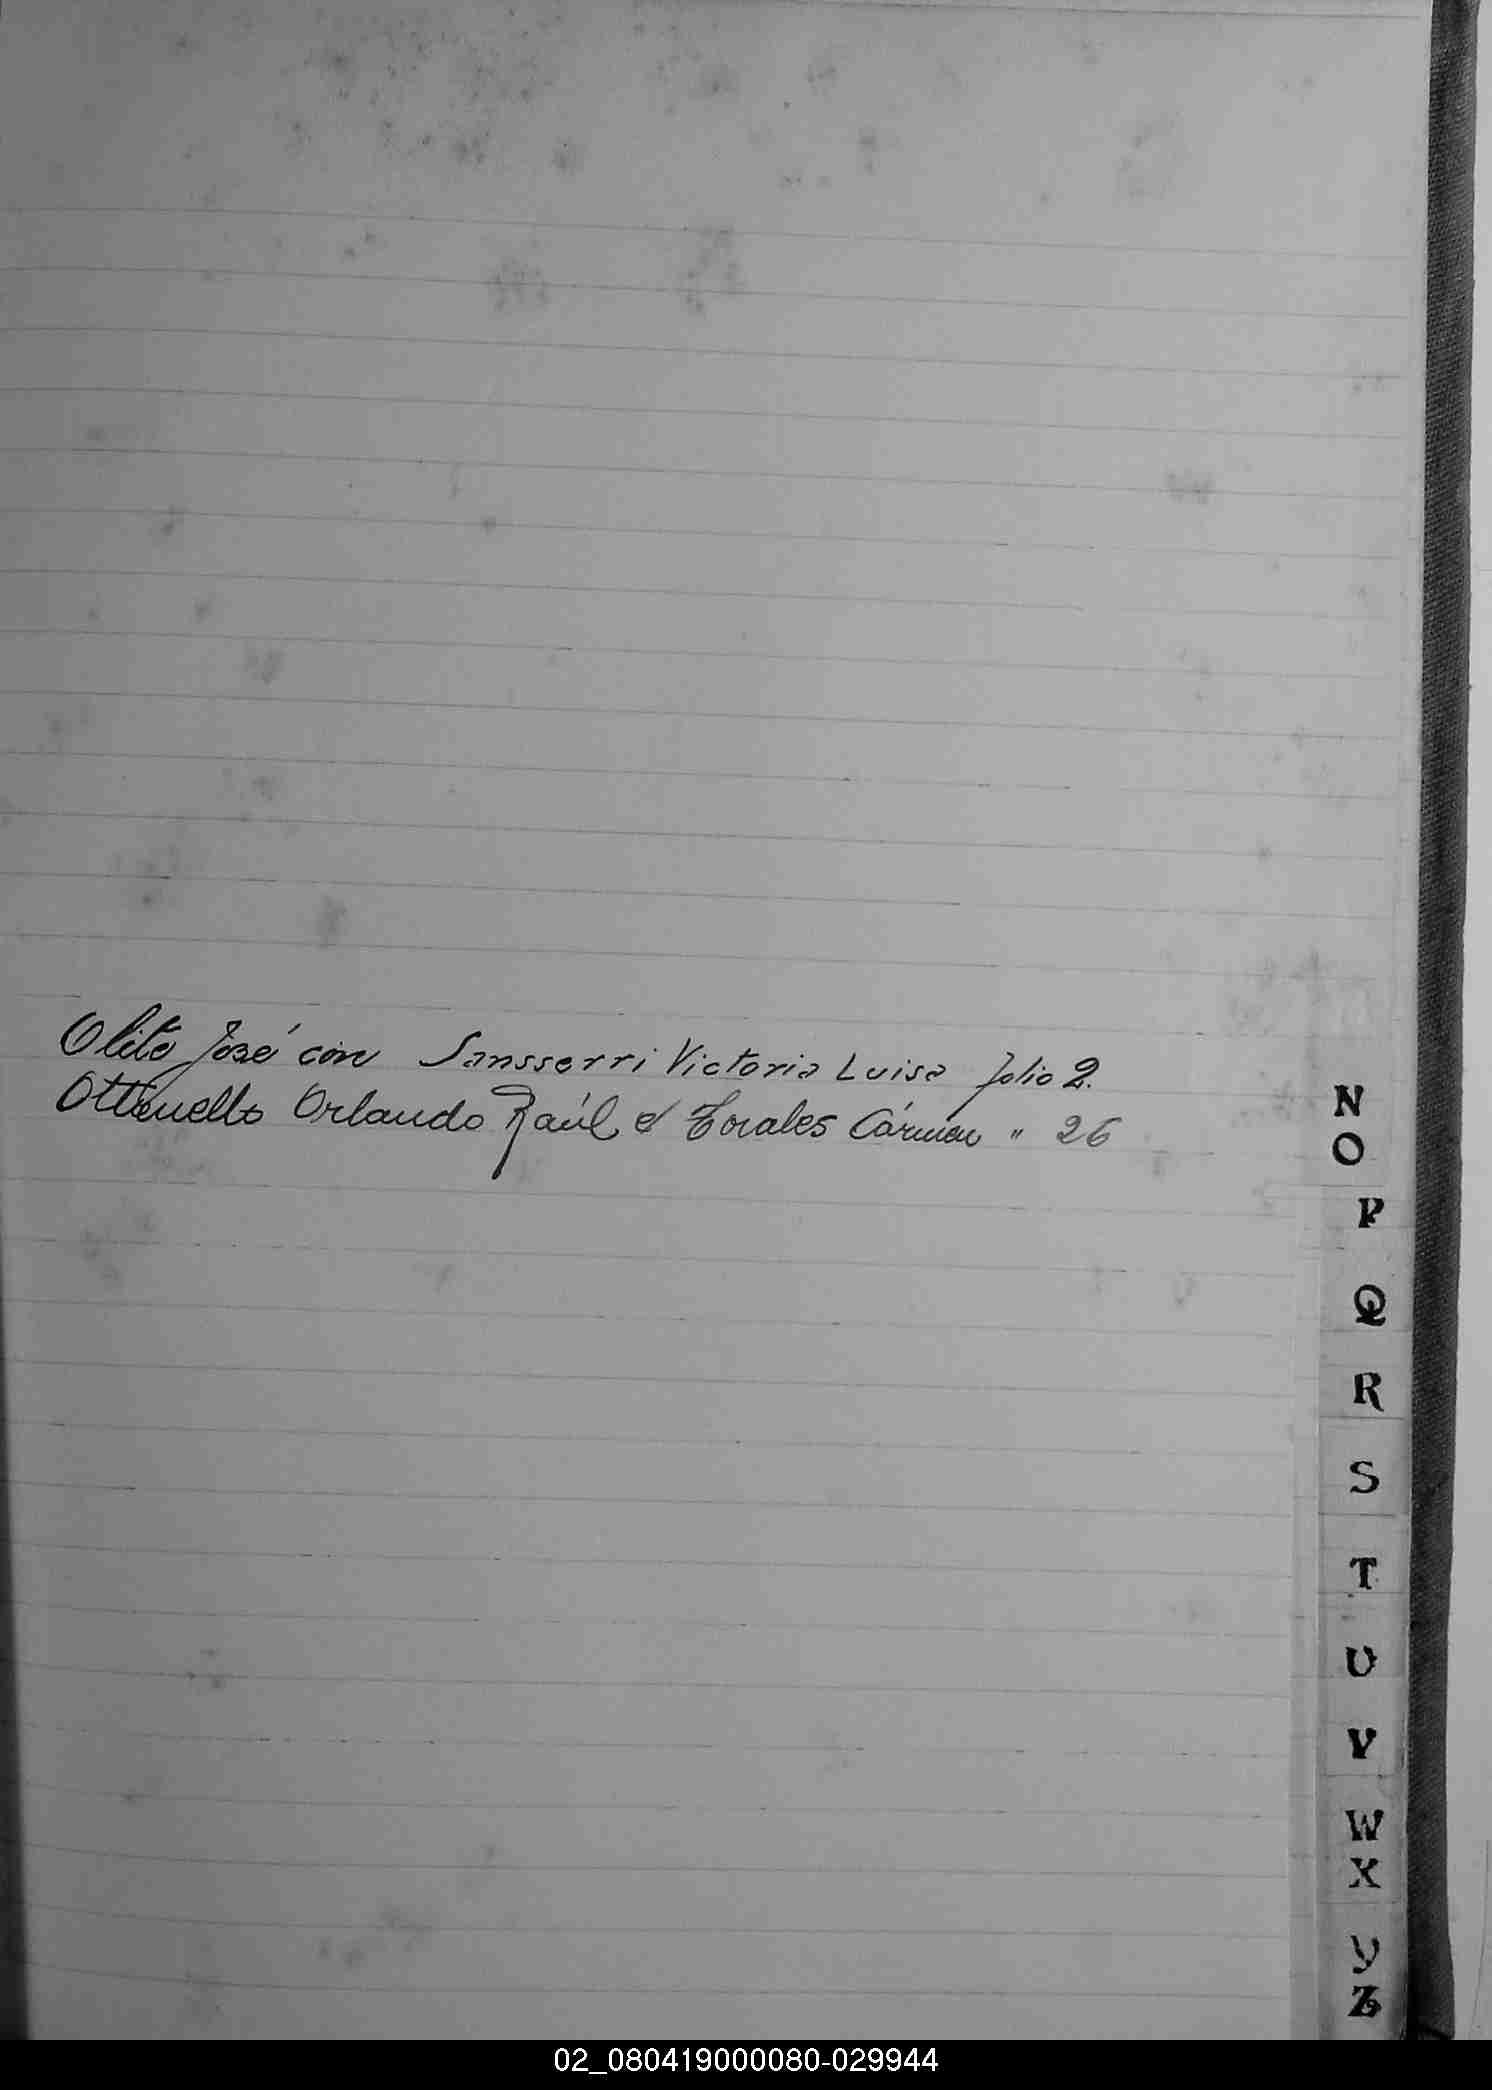 Olito José con Sansserri Victoria Luisa folio 2.
Ottenello Orlando Raúl c/ Torales Cármen " 26
N
O
P
Q
R
S
T
U
V
W
X
Y
Z
02_080419000080-029944